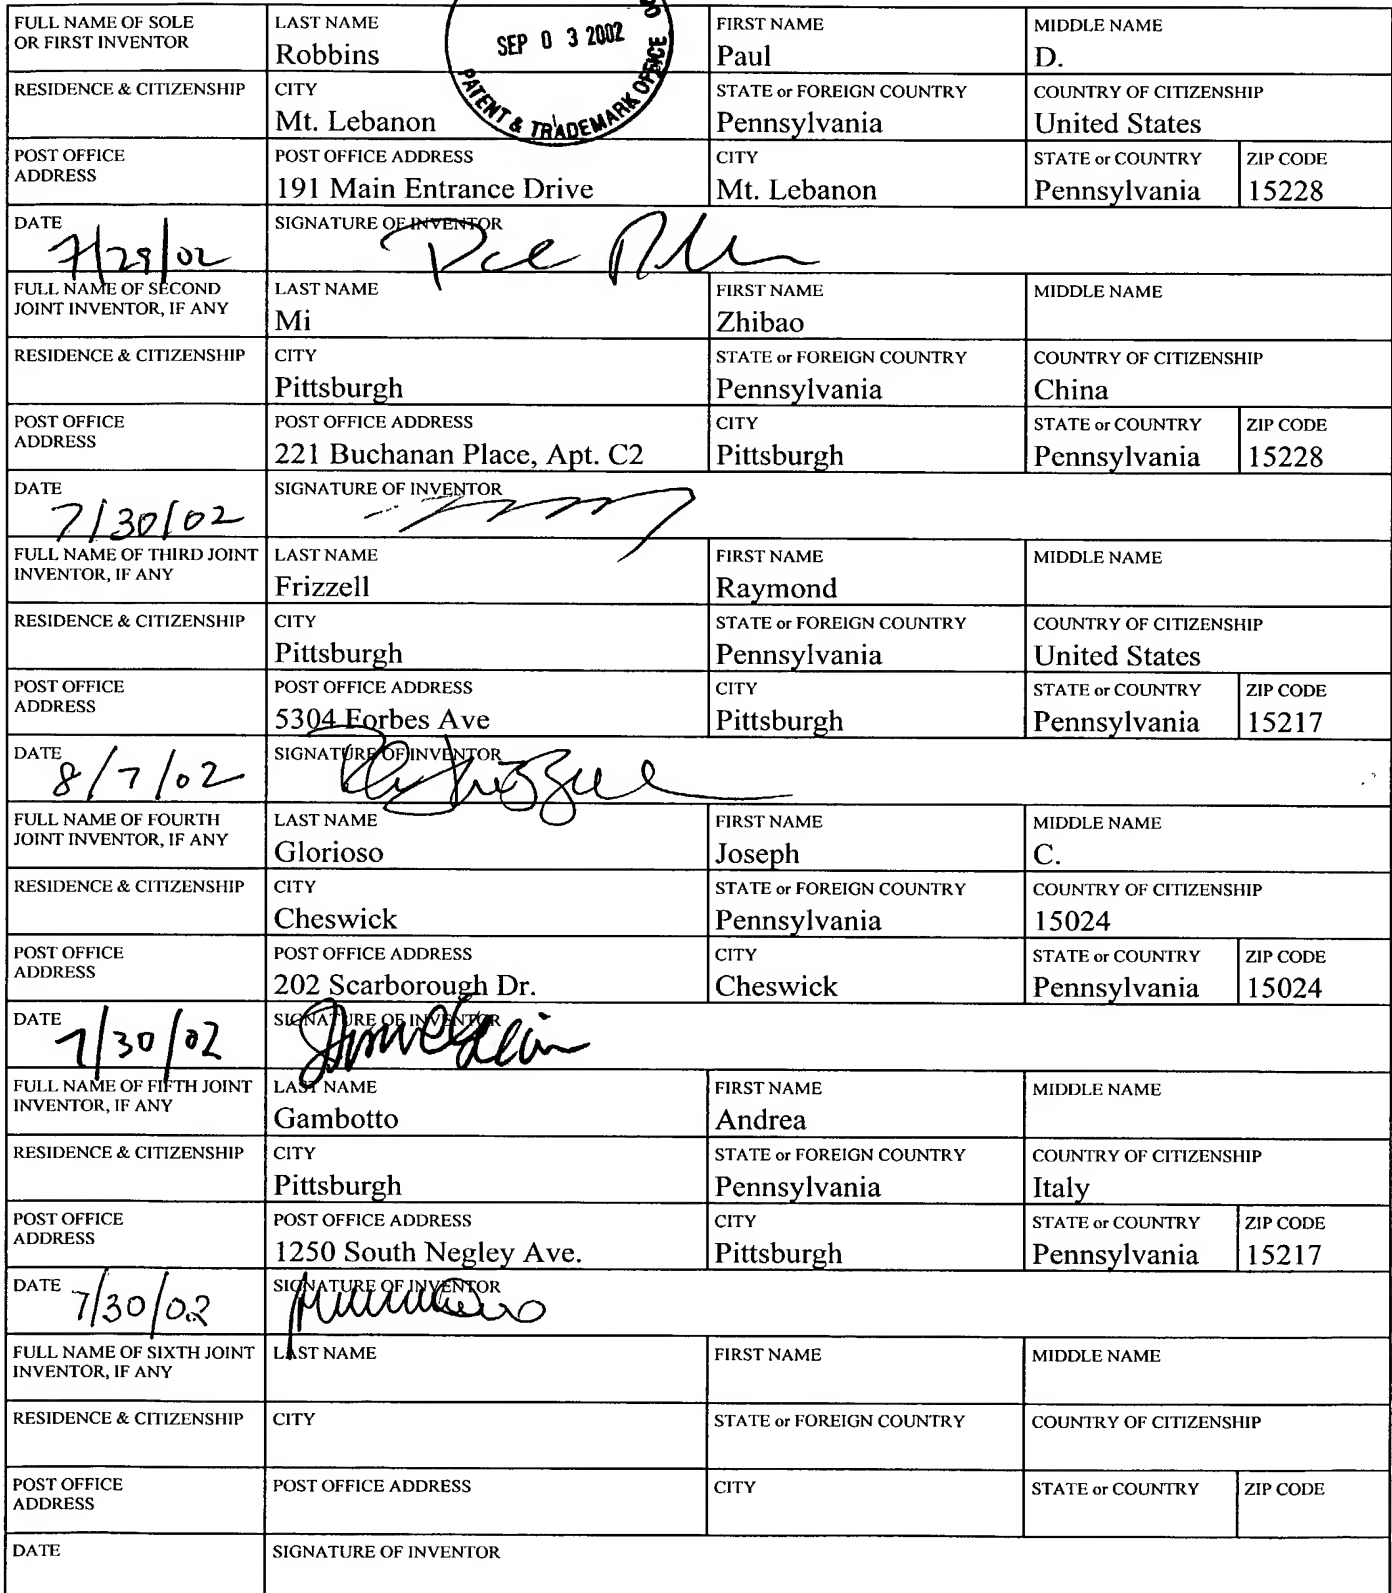 FULL NAME OF SOLE OR FIRST INVENTOR
LAST NAME
Robbins
FIRST NAME
Paul
MIDDLE NAME
D.
SEP 0 3 2002
PATENT & TRADEMARK OFFICE
RESIDENCE & CITIZENSHIP
CITY
Mt. Lebanon
STATE or FOREIGN COUNTRY
Pennsylvania
COUNTRY OF CITIZENSHIP
United States
POST OFFICE ADDRESS
POST OFFICE ADDRESS
191 Main Entrance Drive
CITY
Mt. Lebanon
STATE or COUNTRY
Pennsylvania
ZIP CODE
15228
DATE
7/29/02
SIGNATURE OF INVENTOR
FULL NAME OF SECOND JOINT INVENTOR, IF ANY
LAST NAME
Mi
FIRST NAME
Zhibao
MIDDLE NAME
RESIDENCE & CITIZENSHIP
CITY
Pittsburgh
STATE or FOREIGN COUNTRY
Pennsylvania
COUNTRY OF CITIZENSHIP
China
POST OFFICE ADDRESS
POST OFFICE ADDRESS
221 Buchanan Place, Apt. C2
CITY
Pittsburgh
STATE or COUNTRY
Pennsylvania
ZIP CODE
15228
DATE
7/30/02
SIGNATURE OF INVENTOR
FULL NAME OF THIRD JOINT INVENTOR, IF ANY
LAST NAME
Frizzell
FIRST NAME
Raymond
MIDDLE NAME
RESIDENCE & CITIZENSHIP
CITY
Pittsburgh
STATE or FOREIGN COUNTRY
Pennsylvania
COUNTRY OF CITIZENSHIP
United States
POST OFFICE ADDRESS
POST OFFICE ADDRESS
5304 Forbes Ave
CITY
Pittsburgh
STATE or COUNTRY
Pennsylvania
ZIP CODE
15217
DATE
8/7/02
SIGNATURE OF INVENTOR
FULL NAME OF FOURTH JOINT INVENTOR, IF ANY
LAST NAME
Glorioso
FIRST NAME
Joseph
MIDDLE NAME
C.
RESIDENCE & CITIZENSHIP
CITY
Cheswick
STATE or FOREIGN COUNTRY
Pennsylvania
COUNTRY OF CITIZENSHIP
15024
POST OFFICE ADDRESS
POST OFFICE ADDRESS
202 Scarborough Dr.
CITY
Cheswick
STATE or COUNTRY
Pennsylvania
ZIP CODE
15024
DATE
7/30/02
SIGNATURE OF INVENTOR
FULL NAME OF FIFTH JOINT INVENTOR, IF ANY
LAST NAME
Gambotto
FIRST NAME
Andrea
MIDDLE NAME
RESIDENCE & CITIZENSHIP
CITY
Pittsburgh
STATE or FOREIGN COUNTRY
Pennsylvania
COUNTRY OF CITIZENSHIP
Italy
POST OFFICE ADDRESS
POST OFFICE ADDRESS
1250 South Negley Ave.
CITY
Pittsburgh
STATE or COUNTRY
Pennsylvania
ZIP CODE
15217
DATE
7/30/02
SIGNATURE OF INVENTOR
FULL NAME OF SIXTH JOINT INVENTOR, IF ANY
LAST NAME
FIRST NAME
MIDDLE NAME
RESIDENCE & CITIZENSHIP
CITY
STATE or FOREIGN COUNTRY
COUNTRY OF CITIZENSHIP
POST OFFICE ADDRESS
POST OFFICE ADDRESS
CITY
STATE or COUNTRY
ZIP CODE
DATE
SIGNATURE OF INVENTOR